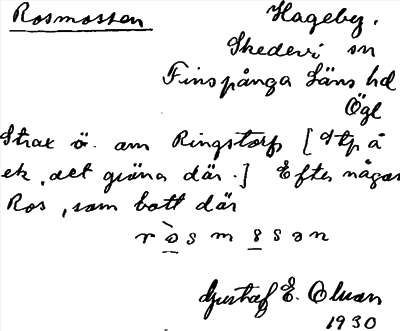 Rosmossen
Hageby.
Skedevi sn
Finspånga Läns hd
Ögl
Strax ö. om Ringstorp [Ttp å
ek, det gräna där.] Efter någon
Ros, som bott där
ròsmosson
Gustaf E. Olson
1930